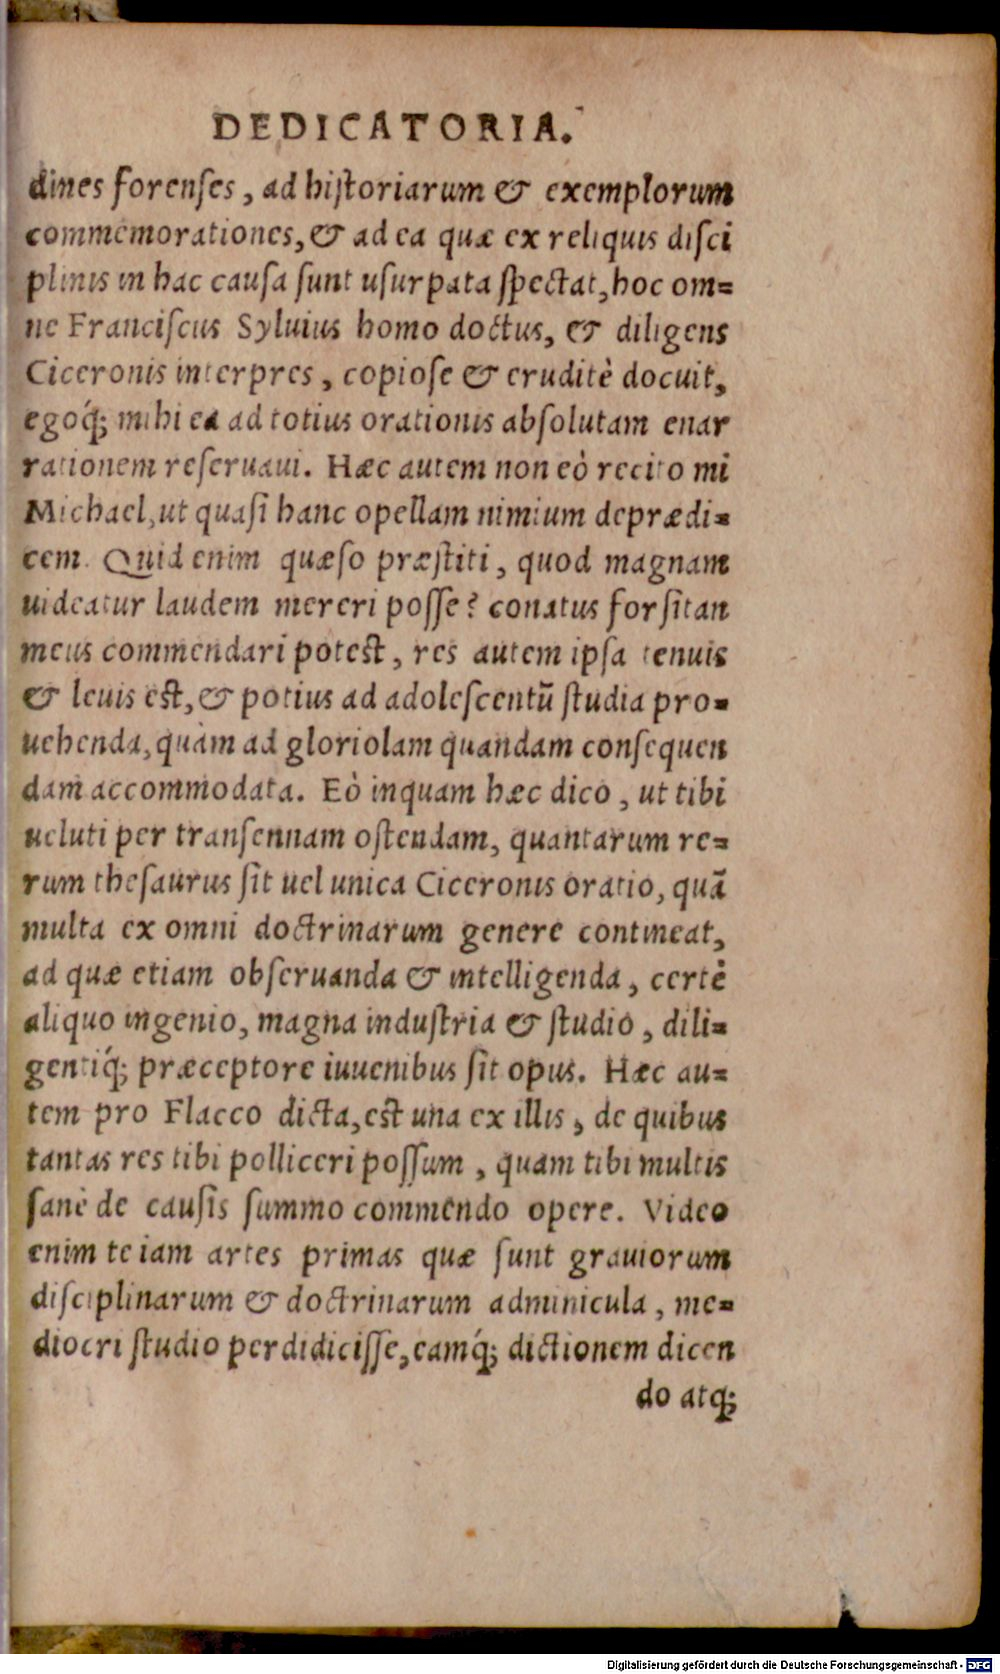 DEDICATORIA.
dines forenses, ad historiarum & exemplorum
commemorationes, & ad ea quæ ex reliquis disci
plinis in hac causa sunt usurpata spectat, hoc om=
ne Franciscus Syluius homo doctus, & diligens
Ciceronis interpres, copiose & eruditè docuit,
egoq́; mihi ea ad totius orationis absolutam enar
rationem reseruaui. Hæc autem non eò recito mi
Michael, ut quasi hanc opellam nimium deprædi=
cem. Quid enim quæso præstiti, quod magnam
uideatur laudem mereri posse? conatus forsitan
meus commendari potest, res autem ipsa tenuis
& leuis est, & potius ad adolescentū studia pro=
uehenda, quàm ad gloriolam quandam consequen
dam accommodata. Eò inquam hæc dico, ut tibi
ueluti per transennam ostendam, quantarum re=
rum thesaurus sit uel unica Ciceronis oratio, quā
multa ex omni doctrinarum genere contineat,
ad quæ etiam obseruanda & intelligenda, certè
aliquo ingenio, magna industria & studio, dili=
gentiq́; præceptore iuuenibus sit opus. Hæc au=
tem pro Flacco dicta, est una ex illis, de quibus
tantas res tibi polliceri possum, quam tibi multis
sanè de causis summo commendo opere. Video
enim te iam artes primas quæ sunt grauiorum
disciplinarum & doctrinarum adminicula, me=
diocri studio perdidicisse, eamq́; dictionem dicen
do atq;
Digitalisierung gefördert durch die Deutsche Forschungsgemeinschaft - DFG